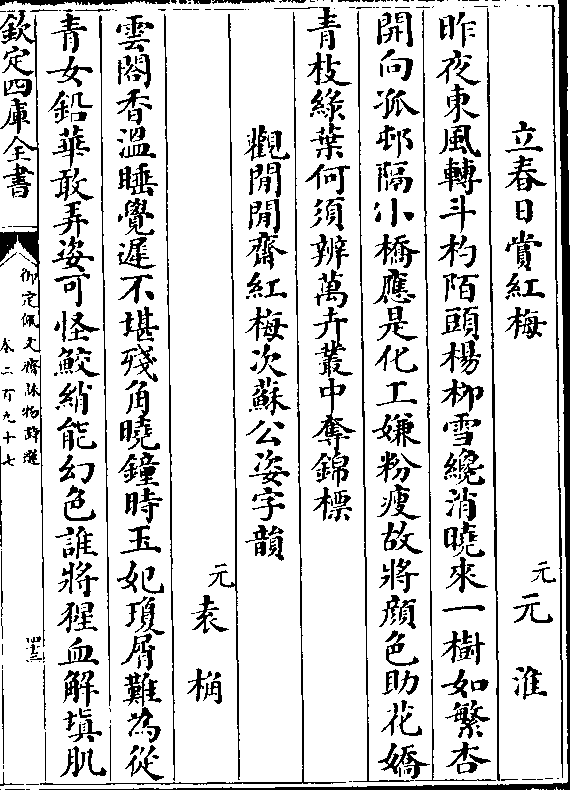 立春日賞紅梅
元 元淮
昨夜東風轉斗杓陌頭楊栁雪纔消曉來一樹如繁杏
開向孤邨隔小橋應是化工嫌粉瘦故將顔色助花嬌
青枝綠葉何須辨萬卉叢中奪錦標
觀閒閒齋紅梅次蘇公姿字韻
元 袁桷
雲閣香溫睡覺遲不堪殘角曉鐘時玉妃瓊屑難為從
青女鉛華敢弄姿可怪鮫綃能幻色誰將猩血解塡肌
欽定四庫全書
御定佩文齋詠物詩選
卷二百九十七
四十三